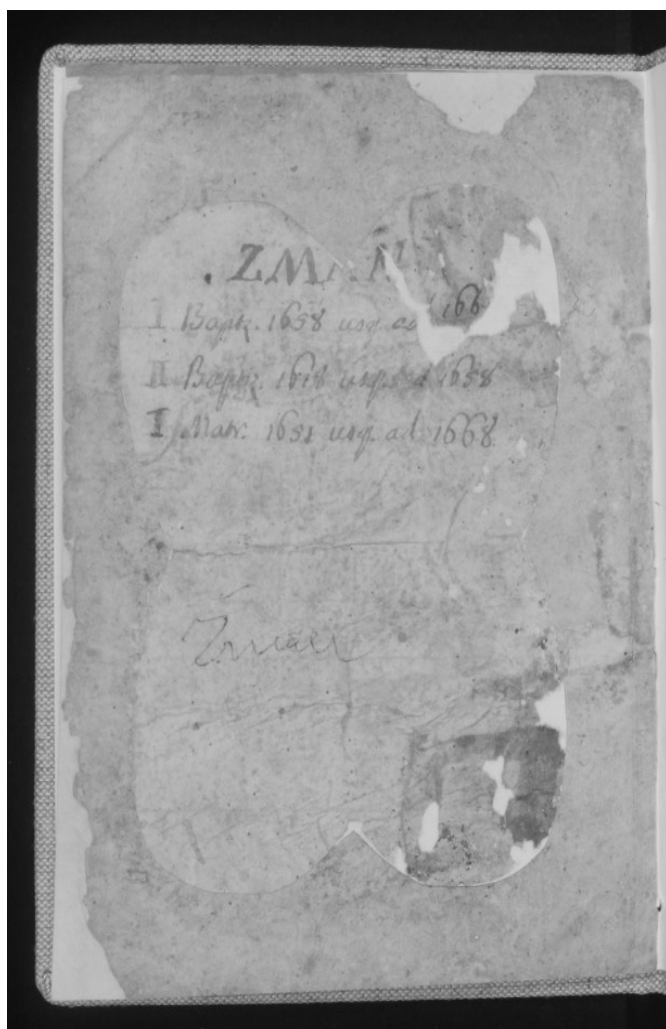 I Baptz. 1658 usq. ad 166
II Baptz. 1618 usq. ad 1658
I Matr. 1651 usq. ad 1668